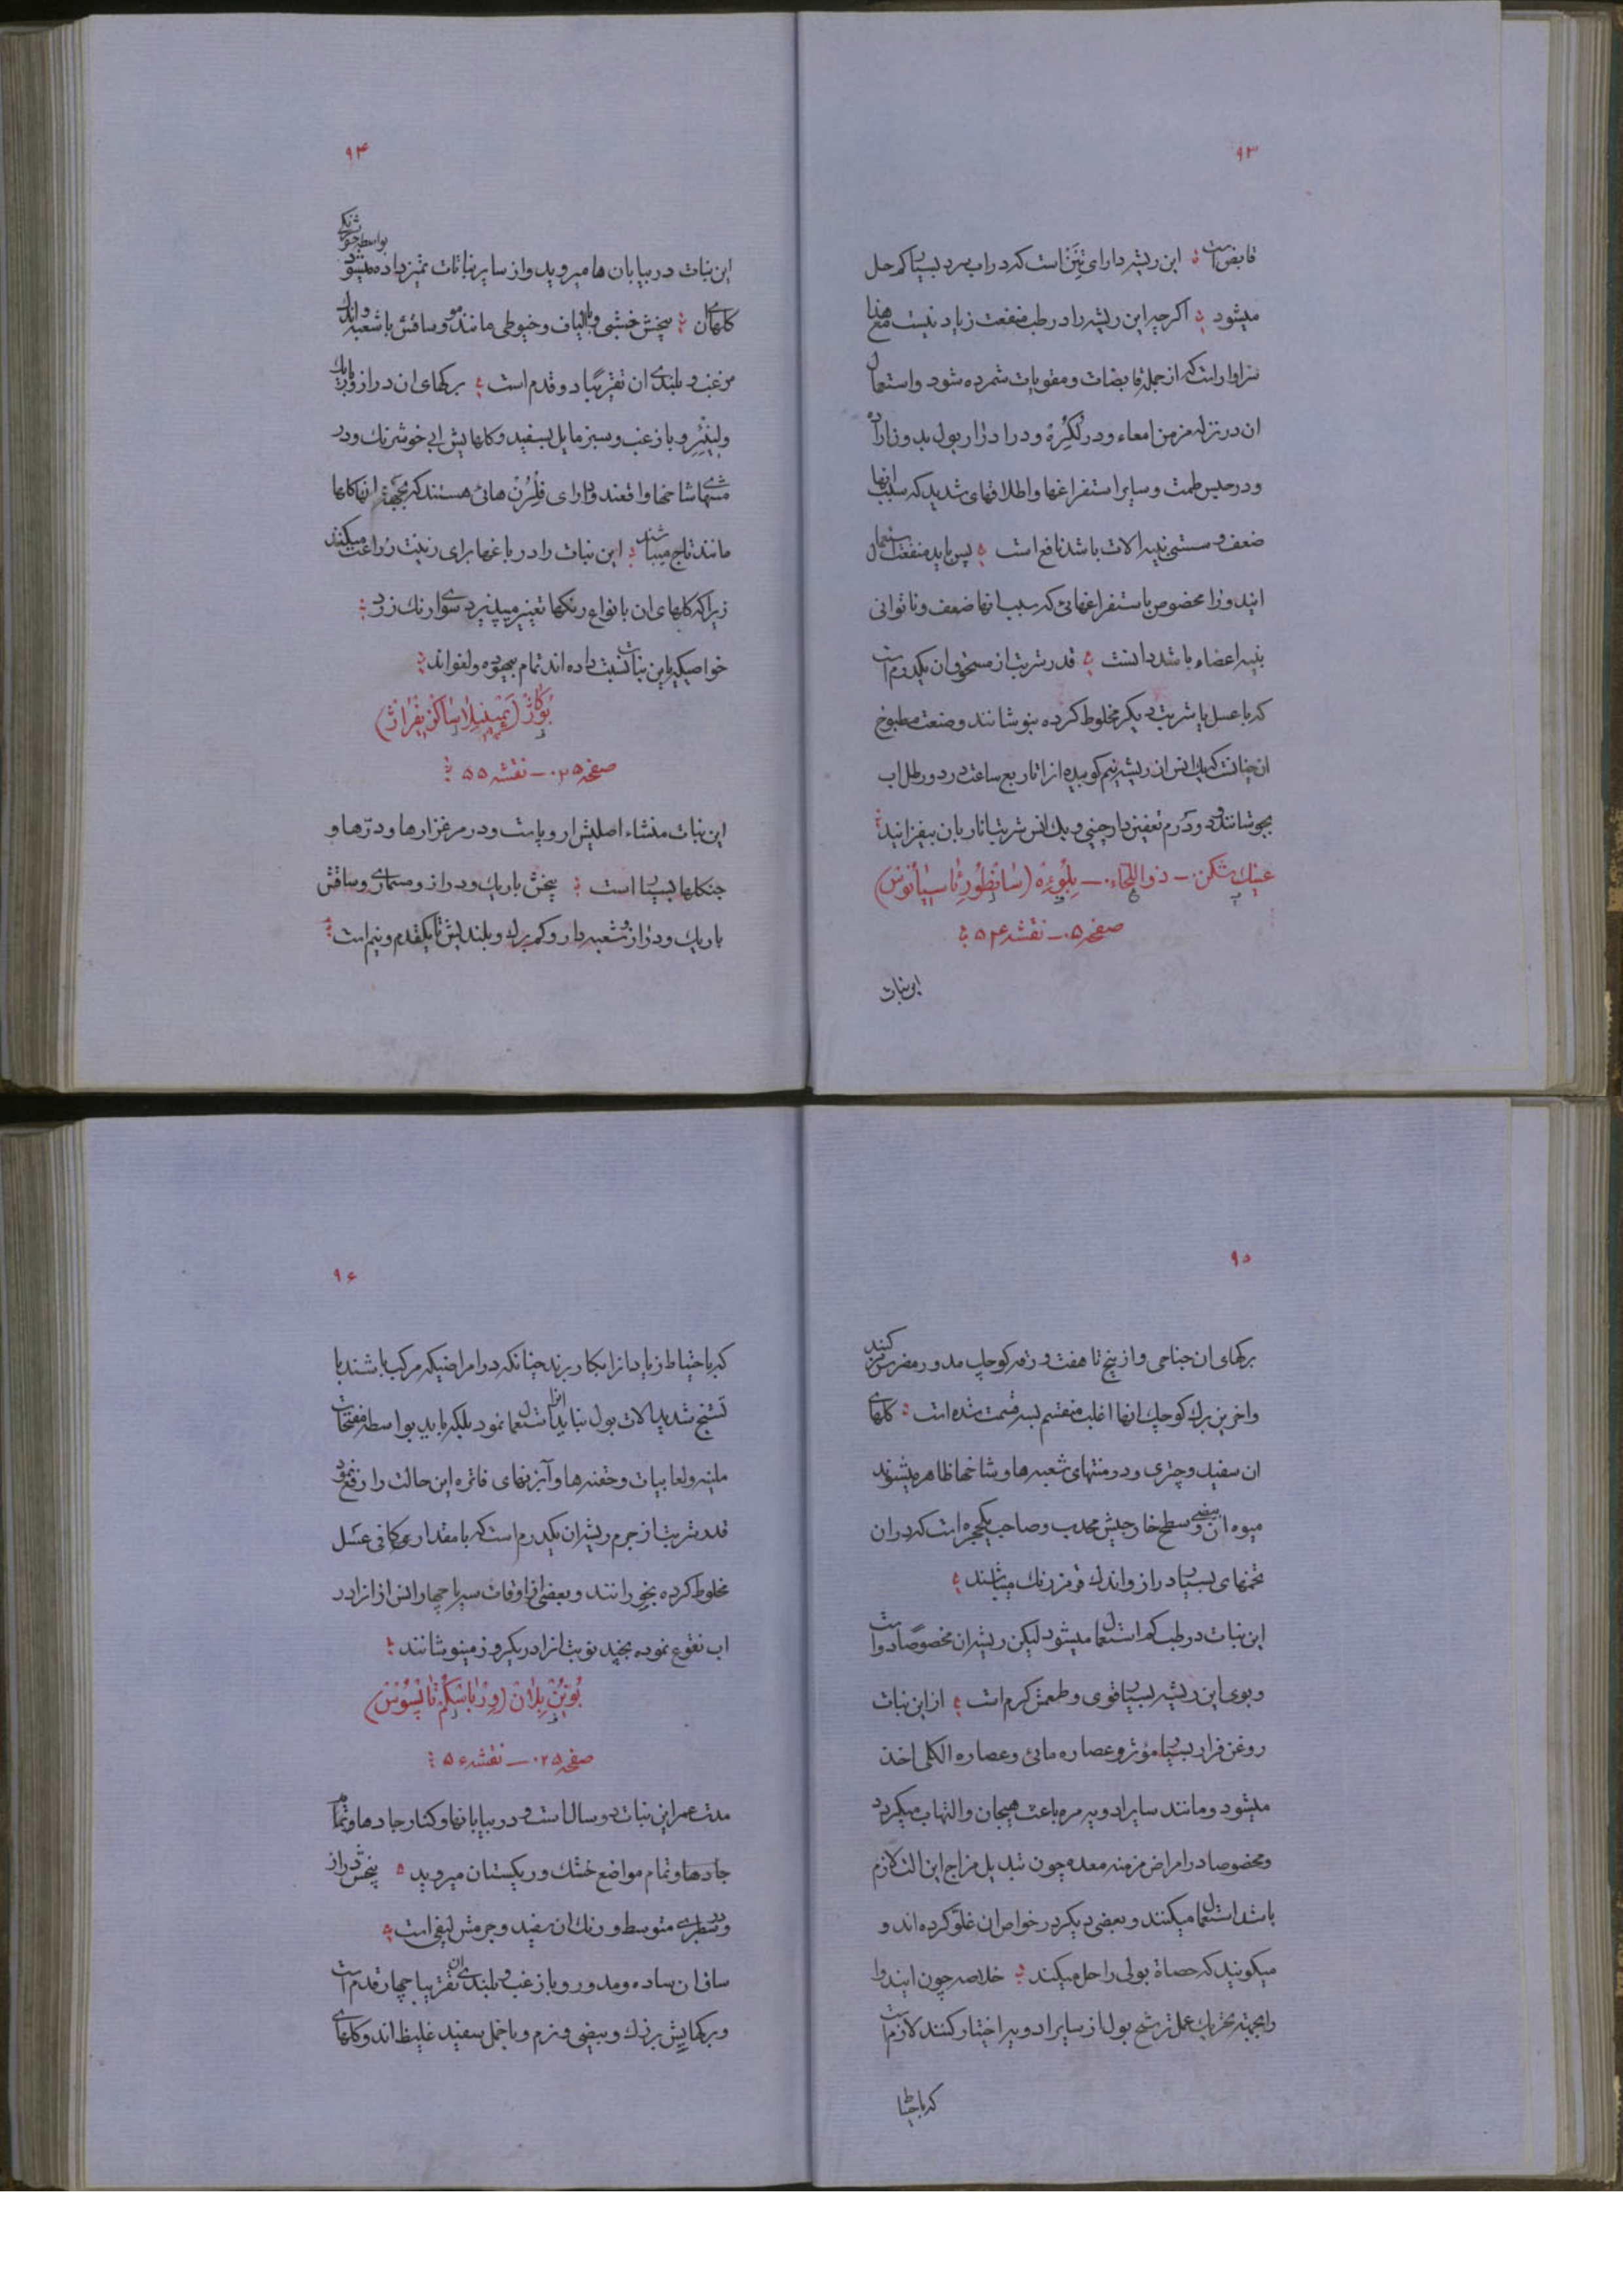 ۹۳
قابض است ؛ این ریشه دارای تنن است که در اب سرد بسیار کم حل
میشود ؛ اکرچه این ریشه را در طب منفعت زیاد نیست مع هذا
سزاوار است که از جمله قابضات و مقویات شمرده شود و استعمال
ان در نزله مزمن امعاء و در لکره و در ادرار بول بد و ناراده
و در حبس طمث و سایر استفراغها و اطلاقهای شدید که سبب انها
ضعف و سستی بنیه الات باشد نافع است ؛ پس باید منفعت استعمال
ایندوا را مخصوص باستفراغهائی که سبب انها ضعف و ناتوانی
بنیه اعضاء باشد دانست ؛ قدر شربت از مسحوق ان یکدرم است
که با عسل یا شربت دیکر مخلوط کرده بنوشانند و صنعت مطبوخ
ان چنانست که یک انس از ریشه نیم کوبیده انرا تا ربع ساعت در دو رطل اب
بجوشانند و دو درم تعفین دارچینی و یک انس شربت انار بان بیفزایند
عینک شکن ـ ذو اللحاء ـ بلوئه (سانطوریا سیانوس)
صفحه ۰۵ ـ نقشه ۵۴ ؛
این نبات
۹۴
این نبات در بیابان ها میروید و از سایر نباتات تمیز داده میشود بواسطه خوشرنکی
کلهای ان ؛ بیخش خشبی و با الیاف و خیوطی مانند مو و ساقش با شعبه و اندک
مزغب و بلندی ان تقریبا دو قدم است ؛ برکهای ان دراز و باریک
و لینئر و با زغب و سبز مایل بسفید و کلهایش ابی خوشرنک و در
منتهای شاخها واقعند و دارای فلرن هائی هستند که بجهة انها کلها
مانند تاج میباشند ؛ این نبات را در باغها برای زینت زراعت میکنند
زیرا که کلهای ان بانواع رنکها تغییر میپذیرد سوای رنک زرد ؛
خواصیکه باین نبات نسبت داده اند تمام بیهوده و لغواند ؛
بوکاژ (پمپینلا ساکزیفراژ)
صفحه ۰۲۵ ـ نقشه ۵۵ ؛
این نبات منشاء اصلیش اروپا است و در مرغزارها و درّها و
جنکلها بسیار است ؛ بیخش باریک و دراز و مسماری و ساقش
باریک و دراز و شعبه دار و کم برک و بلندیش تا یکقدم و نیم است ؛
۹۵
برکهای ان جناحی و از پنج تا هفت ورقه کوچک مدور مضرس مرکبند
و اخرین برک کوچک انها اغلب منقسم بسه قسمت شده است ؛ کلهای
ان سفید و چتری و در منتهای شعبه ها و شاخها ظاهر میشوند
میوه ان بیضی و سطح خارجیش محدب و صاحب یکحجره است که در ان
تخمهای بسیار دراز و اندک قرمز رنک میباشند ؛
این نبات در طب کم استعمال میشود لیکن ریشه ان مخصوصا دوا است
و بوی این ریشه بسیار قوی و طعمش کرم است ؛ از این نبات
روغن فرار بسیار مؤثر و عصاره مائی و عصاره الکلی اخذ
میشود و مانند سایر ادویه مره باعث هیجان و التهاب میکردد
و مخصوصا در امراض مزمنه معده چون تبدیل مزاج این الت لازم
باشد استعمال میکنند و بعضی دیکر در خواص ان غلوّ کرده اند و
میکویند که حصاة بولی را حل میکند ؛ خلاصه چون ایندوا
را بجهة تحریک عمل ترشح بول از سایر ادویه اختیار کنند لازم است
که با احتیاط
۹۶
که با احتیاط زیاد انرا بکار برند چنانکه در امراضیکه مرکب باشند با
تشنج شدید الات بول نباید انرا استعمال نمود بلکه باید بواسطه مفتحات
ملینه و لعابیات و حقنه ها و آبزنهای فاتره این حالت را رفع نمود
قدر شربت از جرم ریشه ان یکدرم است که با مقداری کافی عسل
مخلوط کرده بخورانند و بعضی از اوقات سه یا چهار انس از انرا در
اب نقوع نموده بچند نوبت انرا در یکروز مینوشانند ؛
بوین بلان (ورباسکم تاپسوس)
صفحه ۰۲۵ ـ نقشه ۵۶ ؛
مدت عمر این نبات دو سال است و در بیابانها و کنار جادها و تمام
جادها و تمام مواضع خشک و ریکستان میروید ؛ بیخش دراز
و در سطبری متوسط و رنک ان سفید و جرمش لیفی است ؛
ساق ان ساده و مدور و با زغب و بلندی ان تقریبا چهار قدم است
و برکهایش بزرک و بیضی و نرم و با خمل سفید غلیظ اند و کلهای